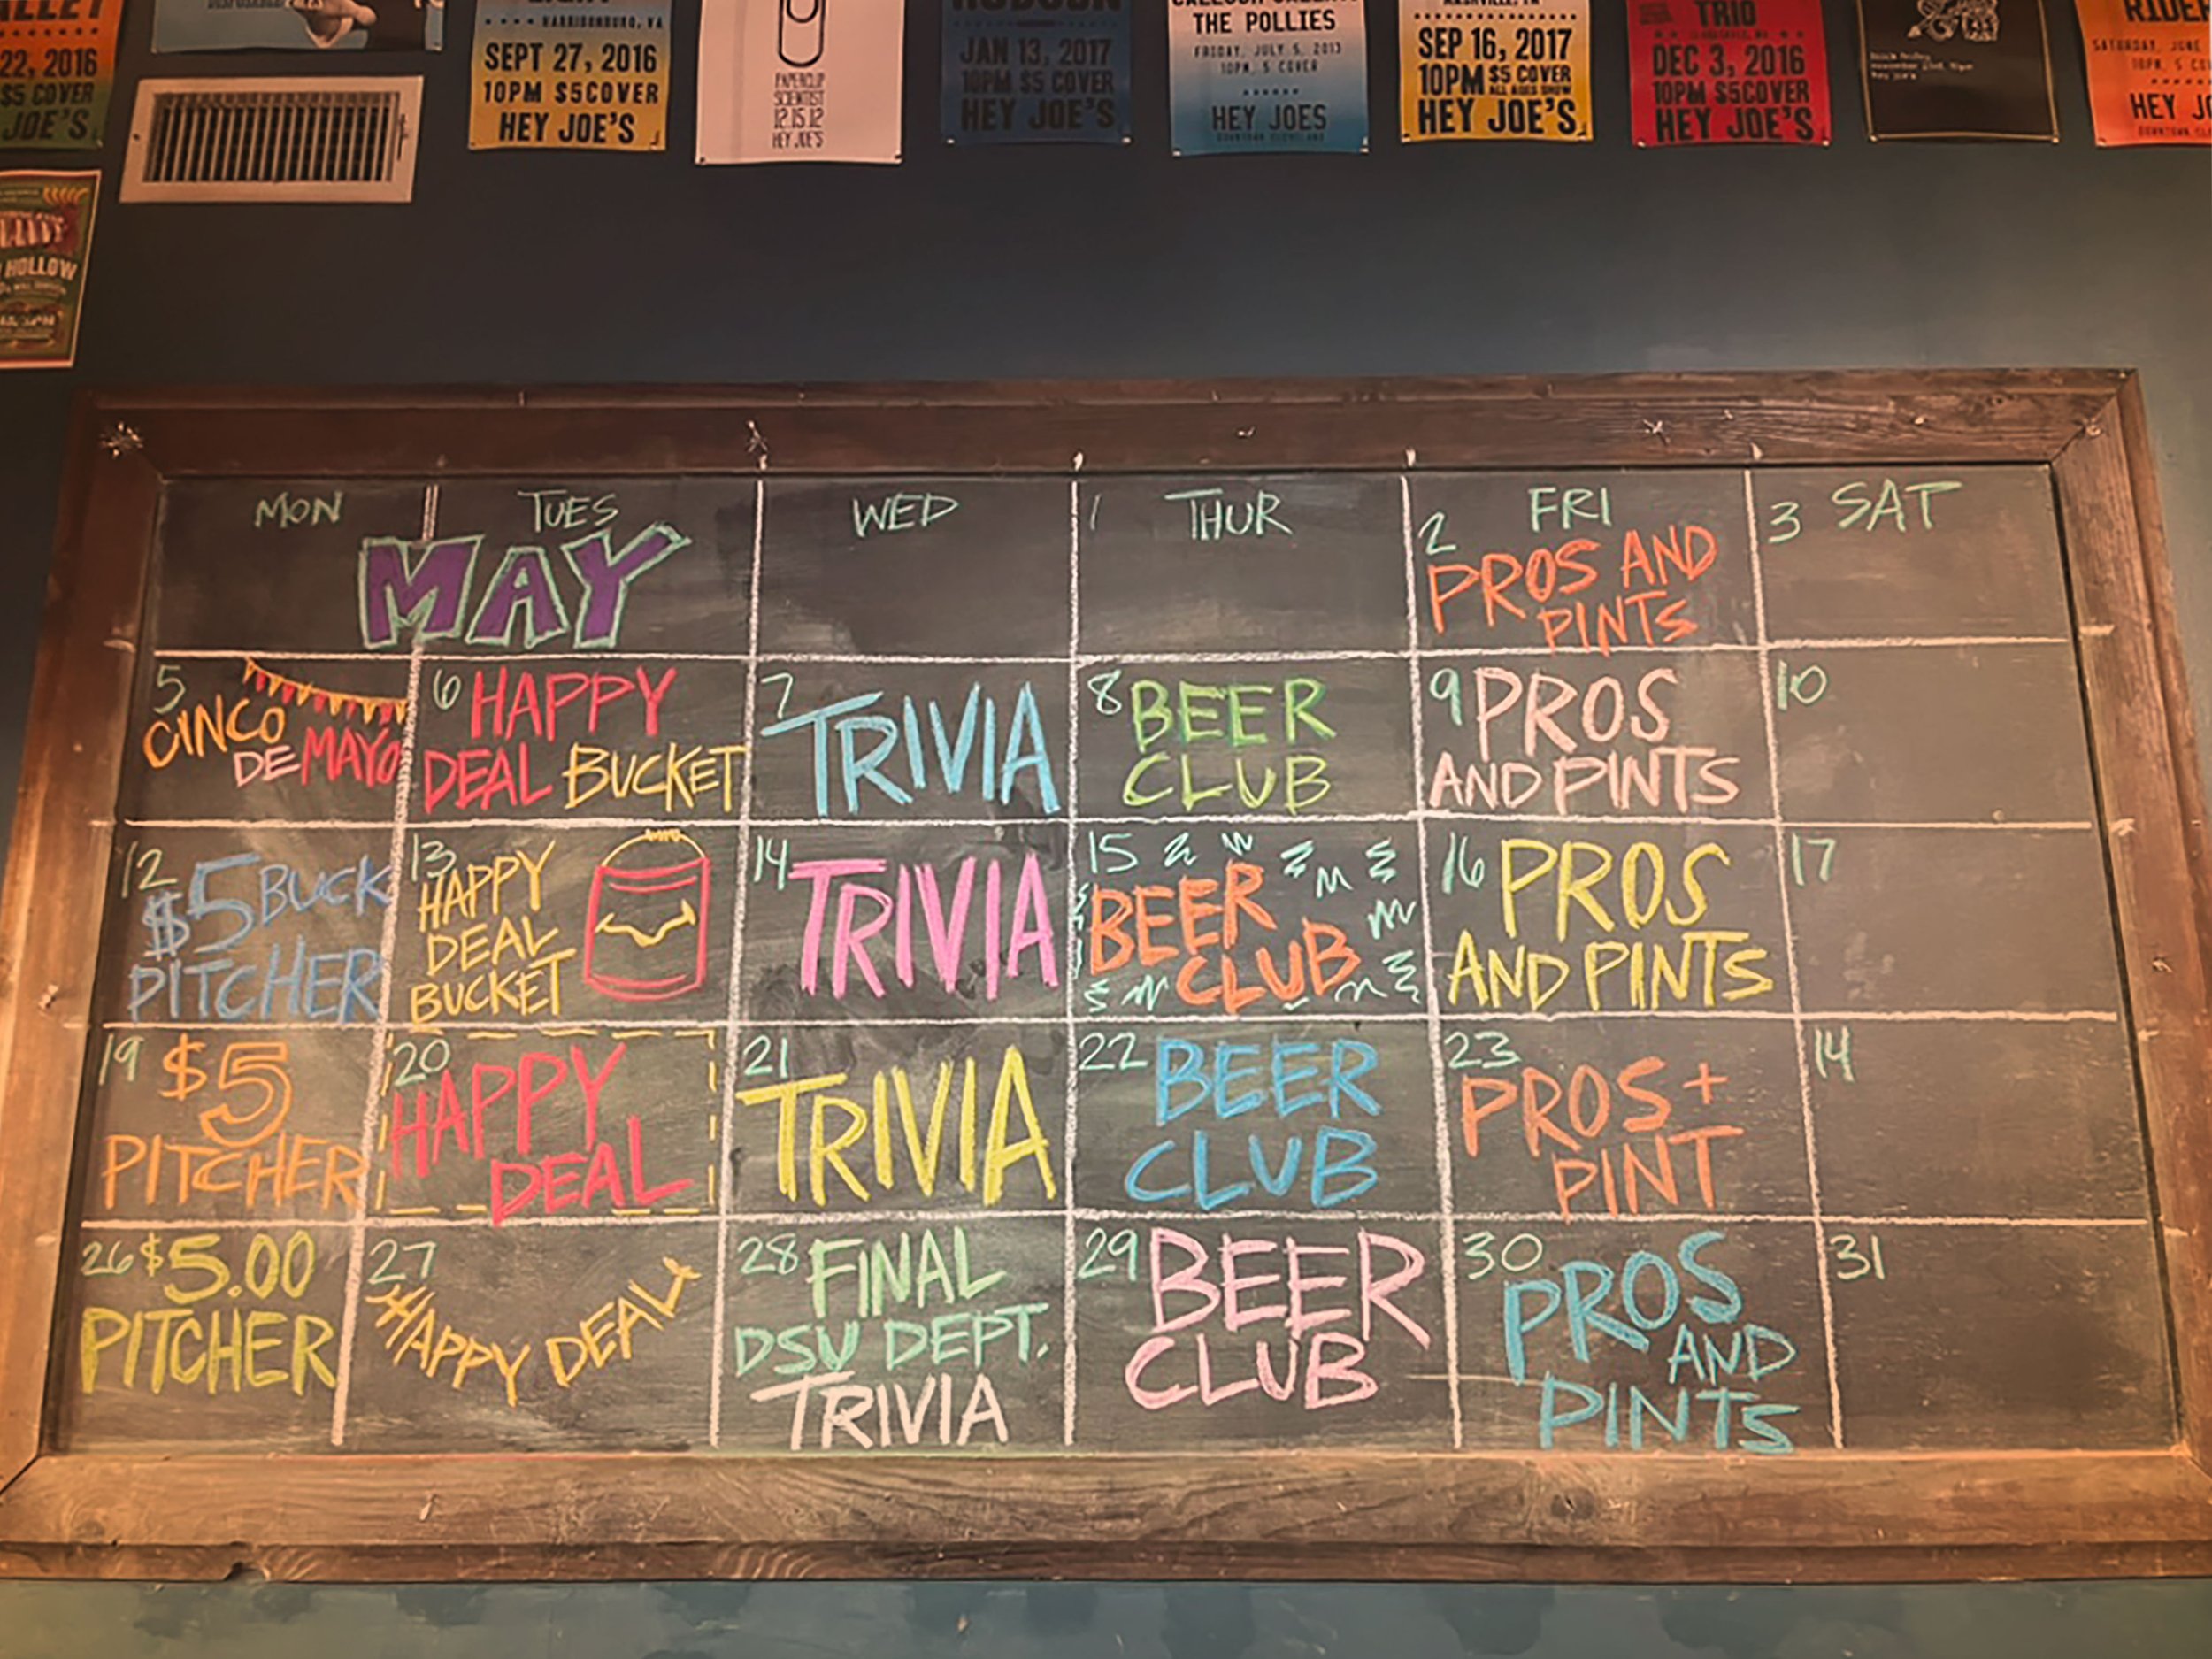 22, 2016
$5 COVER
JOE'S
HARRISONBURG, VA
SEPT 27, 2016
10PM $5 COVER
HEY JOE'S
PAPERCLIP
SCIENTIST
12.15.12
HEY JOE'S
HUDSON
JAN 13, 2017
10PM $5 COVER
HEY JOE'S
THE POLLIES
FRIDAY, JULY 5, 2013
10PM, 5 COVER
HEY JOES
DOWNTOWN CLEVELAND
NASHVILLE, TN
SEP 16, 2017
10PM $5 COVER
ALL AGES SHOW
HEY JOE'S
TRIO
DEC 3, 2016
10PM $5 COVER
HEY JOE'S
HEY JO
HOLLOW
MON TUES WED 1 THUR 2 FRI 3 SAT
MAY
PROS AND
PINTS
5 CINCO
DE MAYO
6 HAPPY
DEAL BUCKET
7 TRIVIA
8 BEER
CLUB
9 PROS
AND PINTS
10
12 $5 BUCK
PITCHER
13
HAPPY
DEAL
BUCKET
14 TRIVIA
15
BEER
CLUB
16 PROS
AND PINTS
17
19 $5
PITCHER
20
HAPPY
DEAL
21
TRIVIA
22 BEER
CLUB
23
PROS +
PINT
14
26 $5.00
PITCHER
27
HAPPY DEAL
28 FINAL
DSU DEPT.
TRIVIA
29 BEER
CLUB
30
PROS
AND
PINTS
31